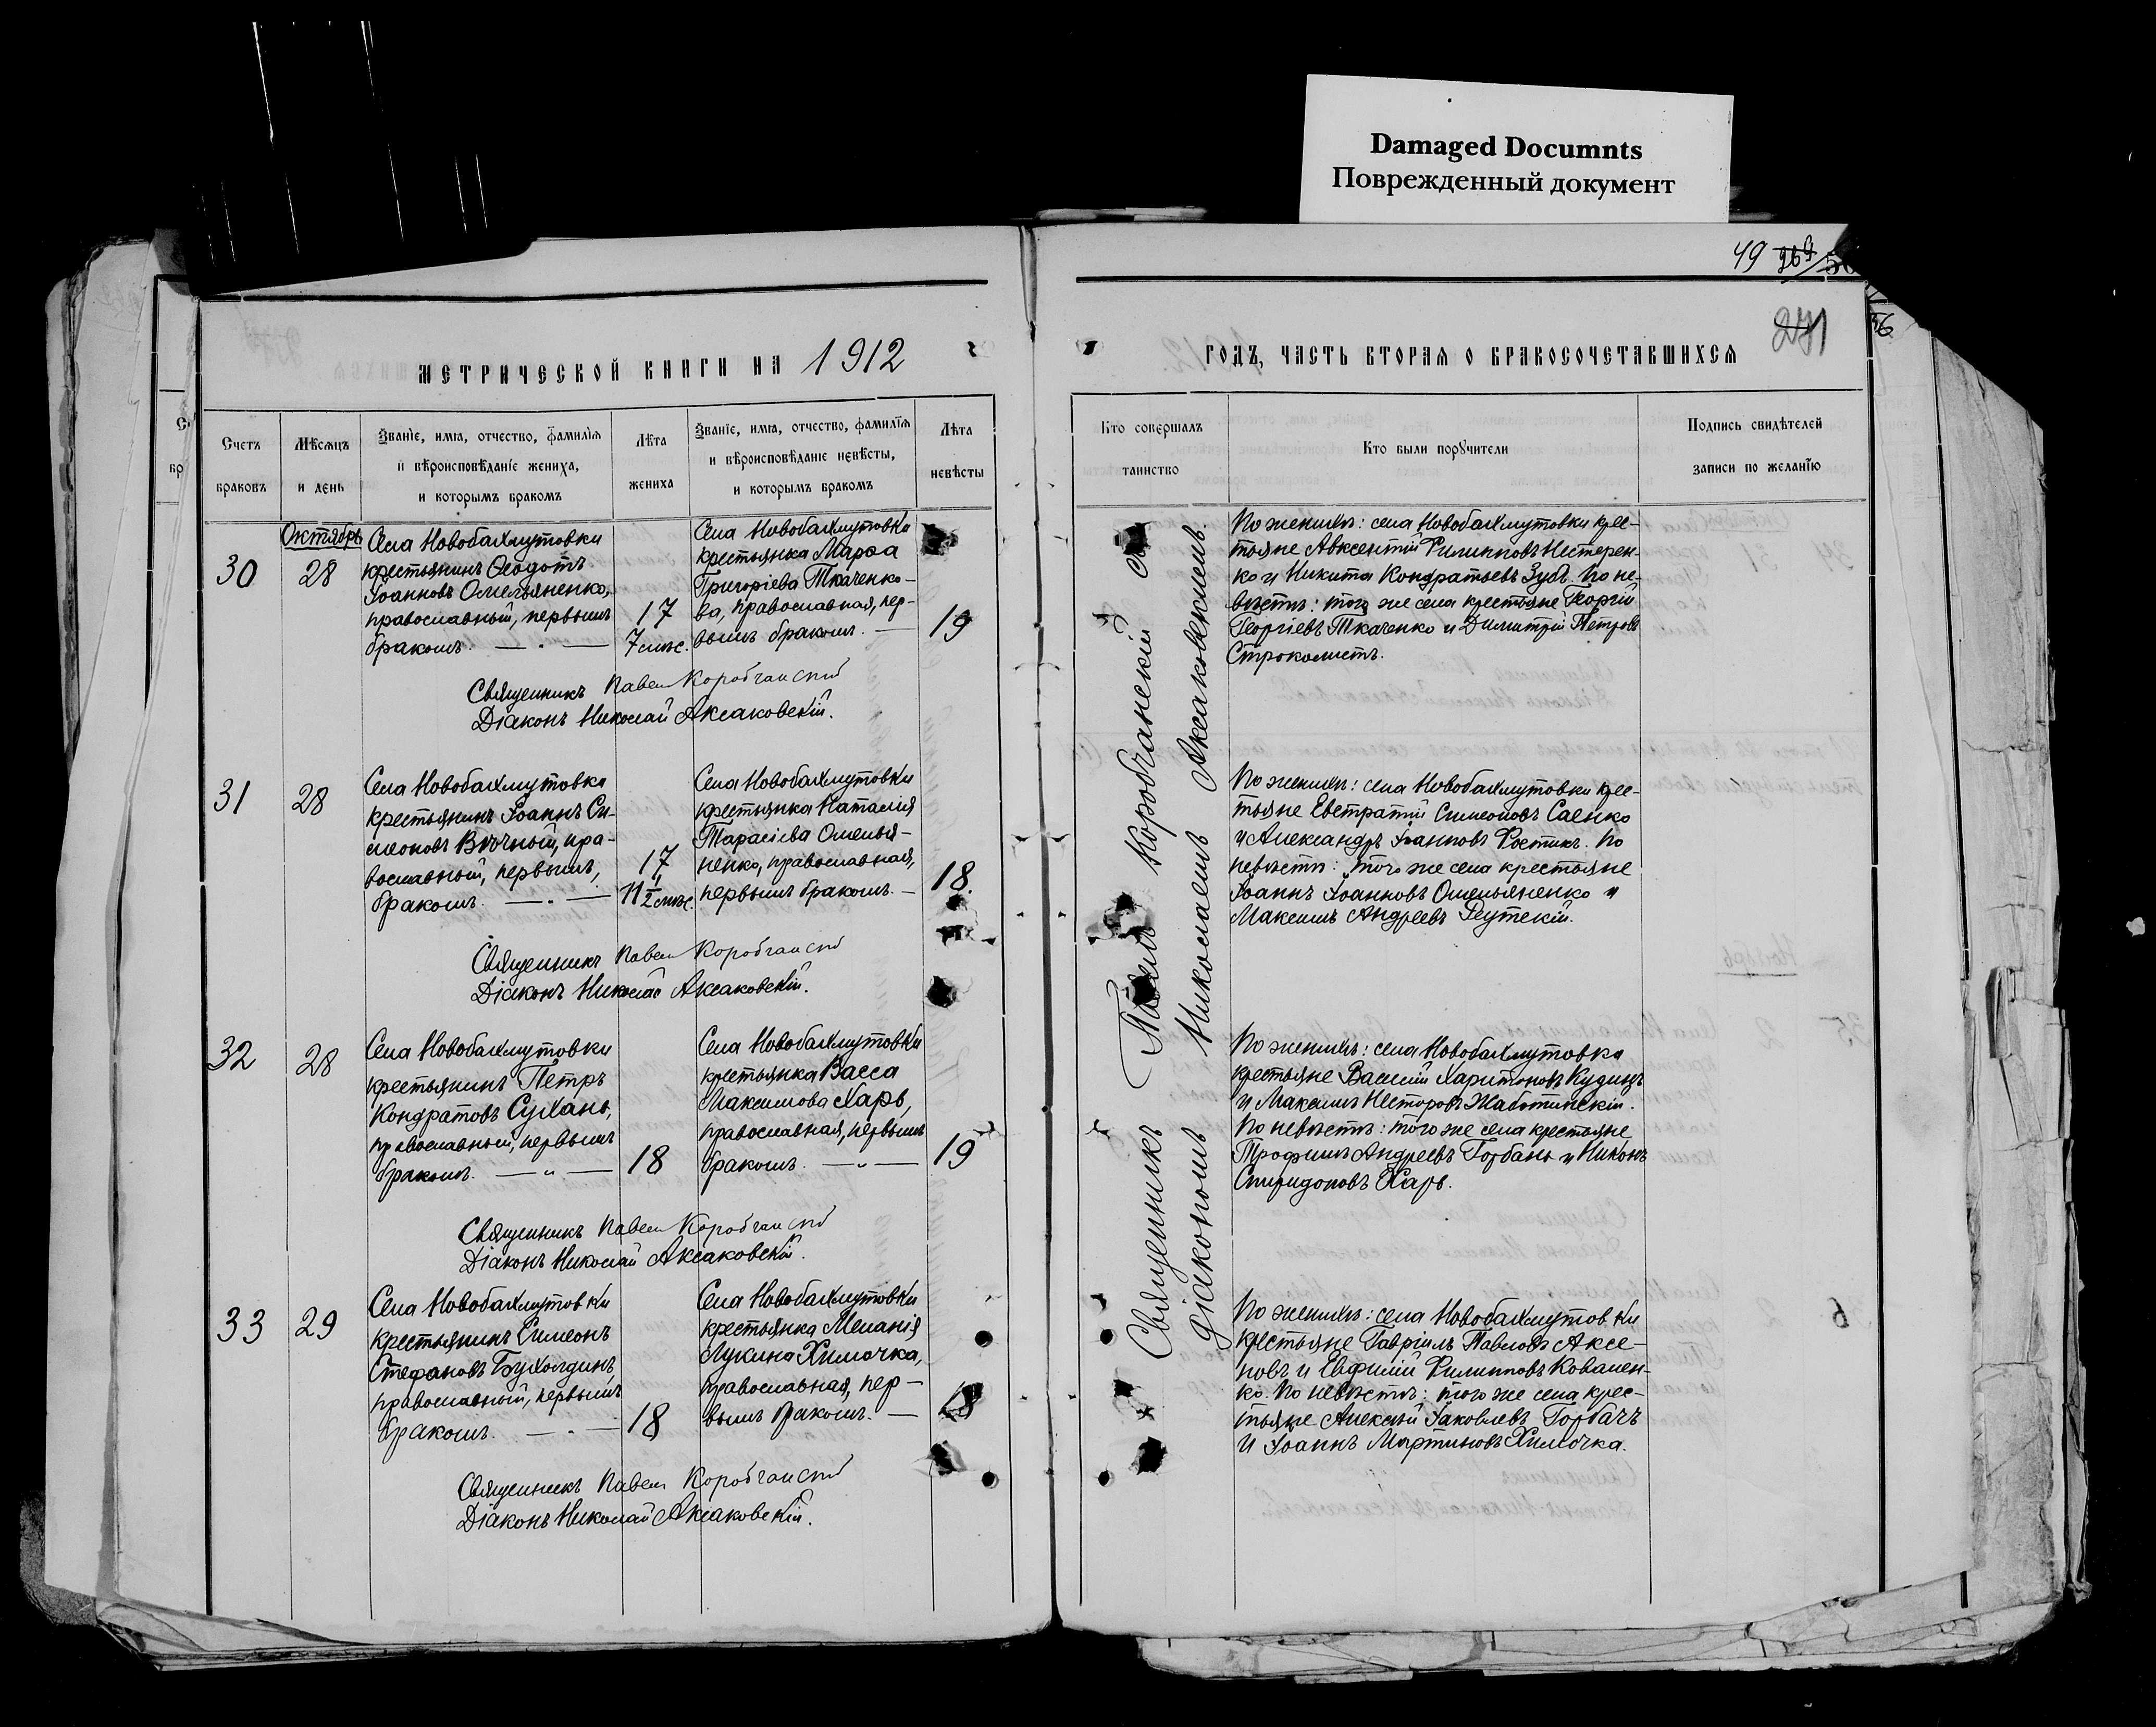 Damaged Documnts
Поврежденный документ
49 269
271
56
МЕТРИЧЕСКОЙ КНИГИ НА 1912
ГОДЪ, ЧАСТЬ ВТОРАЯ О БРАКОСОЧЕТАВШИХСЯ
Счетъ
браковъ
Мѣсяцъ
и день
Званіе, имя, отчество, фамилія
и вѣроисповѣданіе жениха,
и которымъ бракомъ
Лѣта
жениха
Званіе, имя, отчество, фамилія
и вѣроисповѣданіе невѣсты,
и которымъ бракомъ
Лѣта
невѣсты
Кто совершалъ
таинство
Кто были поручители
Подпись свидѣтелей
записи по желанію
30
Октябрь
28
Села Новобахмутовки
крестьянинъ Ѳеодотъ
Іоанновъ Омельяненко,
православный, первымъ
бракомъ.
17
7 мѣс.
Села Новобахмутовки
крестьянка Марѳа
Григоріева Ткаченко-
ва, православная, пер-
вымъ бракомъ.
19
Священникъ Павелъ Коробчанскій
Діаконъ Николай Аксаковскій.
31
28
Села Новобахмутовки
крестьянинъ Іоаннъ Си-
меоновъ Вѣчный, пра-
вославный, первымъ,
бракомъ.
17
11 1/2 мѣс.
Села Новобахмутовки
крестьянка Наталія
Тарасіева Омелья-
ненко, православная,
первымъ бракомъ.
18.
Священникъ Павелъ Коробчанскій
Діаконъ Николай Аксаковскій.
32
28
Села Новобахмутовки
крестьянинъ Петръ
Кондратовъ Сухань,
православный, первымъ
бракомъ.
18
Села Новобахмутовки
крестьянка Васса
Максимова Харь,
православная, первымъ
бракомъ.
19
Священникъ Павелъ Коробчанскій
Діаконъ Николай Аксаковскій.
33
29
Села Новобахмутовки
крестьянинъ Симеонъ
Стефановъ Бухолдинъ,
православный, первымъ
бракомъ.
18
Села Новобахмутовки
крестьянка Меланія
Лукина Химочка,
православная, пер-
вымъ бракомъ.
18
Священникъ Павелъ Коробчанскій
Діаконъ Николай Аксаковскій.
Священникъ Павелъ Коробчанскій съ
діакономъ Николаемъ Аксаковскимъ.
По женихѣ: села Новобахмутовки крес-
тьяне Авксентій Филипповъ Нестерен-
ко и Никита Кондратьевъ Зубъ. По не-
вѣстѣ: того же села крестьяне Георгій
Георгіевъ Ткаченко и Димитрій Петровъ
Строкомистъ.
По женихѣ: села Новобахмутовки крес-
тьяне Евстратій Симеоновъ Саенко
и Александръ Іоанновъ Ростикъ. По
невѣстѣ: того же села крестьяне
Іоаннъ Іоанновъ Омельяненко и
Максимъ Андреевъ Реутскій.
По женихѣ: села Новобахмутовки
крестьяне Василій Харитоновъ Кудинъ
и Максимъ Несторовъ Жаботинскій.
По невѣстѣ: того же села крестьяне
Трофимъ Андреевъ Горбань и Никонъ
Спиридоновъ Харь.
По женихѣ: села Новобахмутовки
крестьяне Гавріилъ Павловъ Аксе-
новъ и Евфимій Филипповъ Ковален-
ко. По невѣстѣ: того же села крес-
тьяне Алексій Іаковлевъ Горбачъ
и Іоаннъ Мартиновъ Химочка.